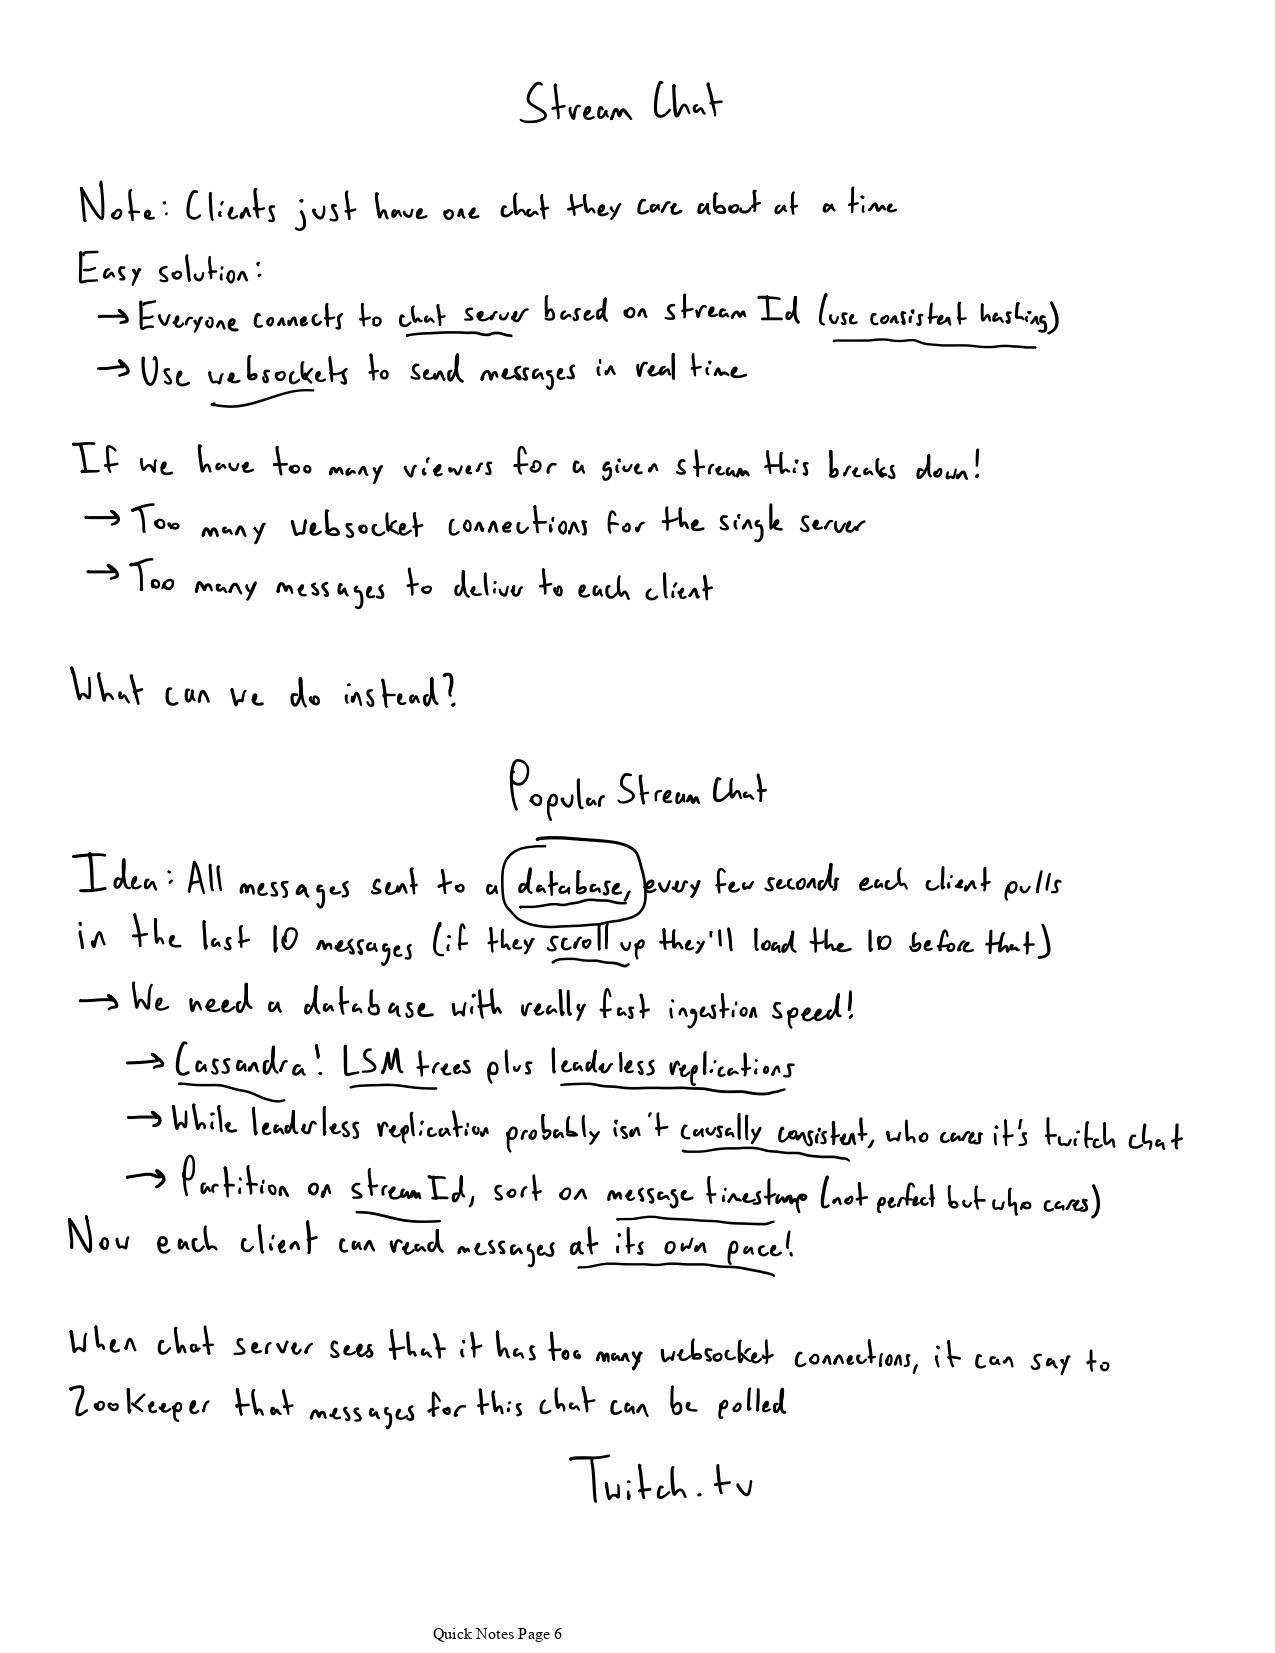 Stream Chat
Note: Clients just have one chat they care about at a time
Easy solution:
→ Everyone connects to chat server based on stream Id (use consistent hashing)
→ Use websockets to send messages in real time
If we have too many viewers for a given stream this breaks down!
→ Too many websocket connections for the single server
→ Too many messages to deliver to each client
What can we do instead?
Popular Stream Chat
Idea: All messages sent to a database, every few seconds each client pulls
in the last 10 messages (if they scroll up they'll load the 10 before that)
→ We need a database with really fast ingestion speed!
→ Cassandra! LSM trees plus leaderless replications
→ While leaderless replication probably isn't causally consistent, who cares it's twitch chat
→ Partition on stream Id, sort on message timestamp (not perfect but who cares)
Now each client can read messages at its own pace!
When chat server sees that it has too many websocket connections, it can say to
ZooKeeper that messages for this chat can be polled
Twitch.tv
Quick Notes Page 6